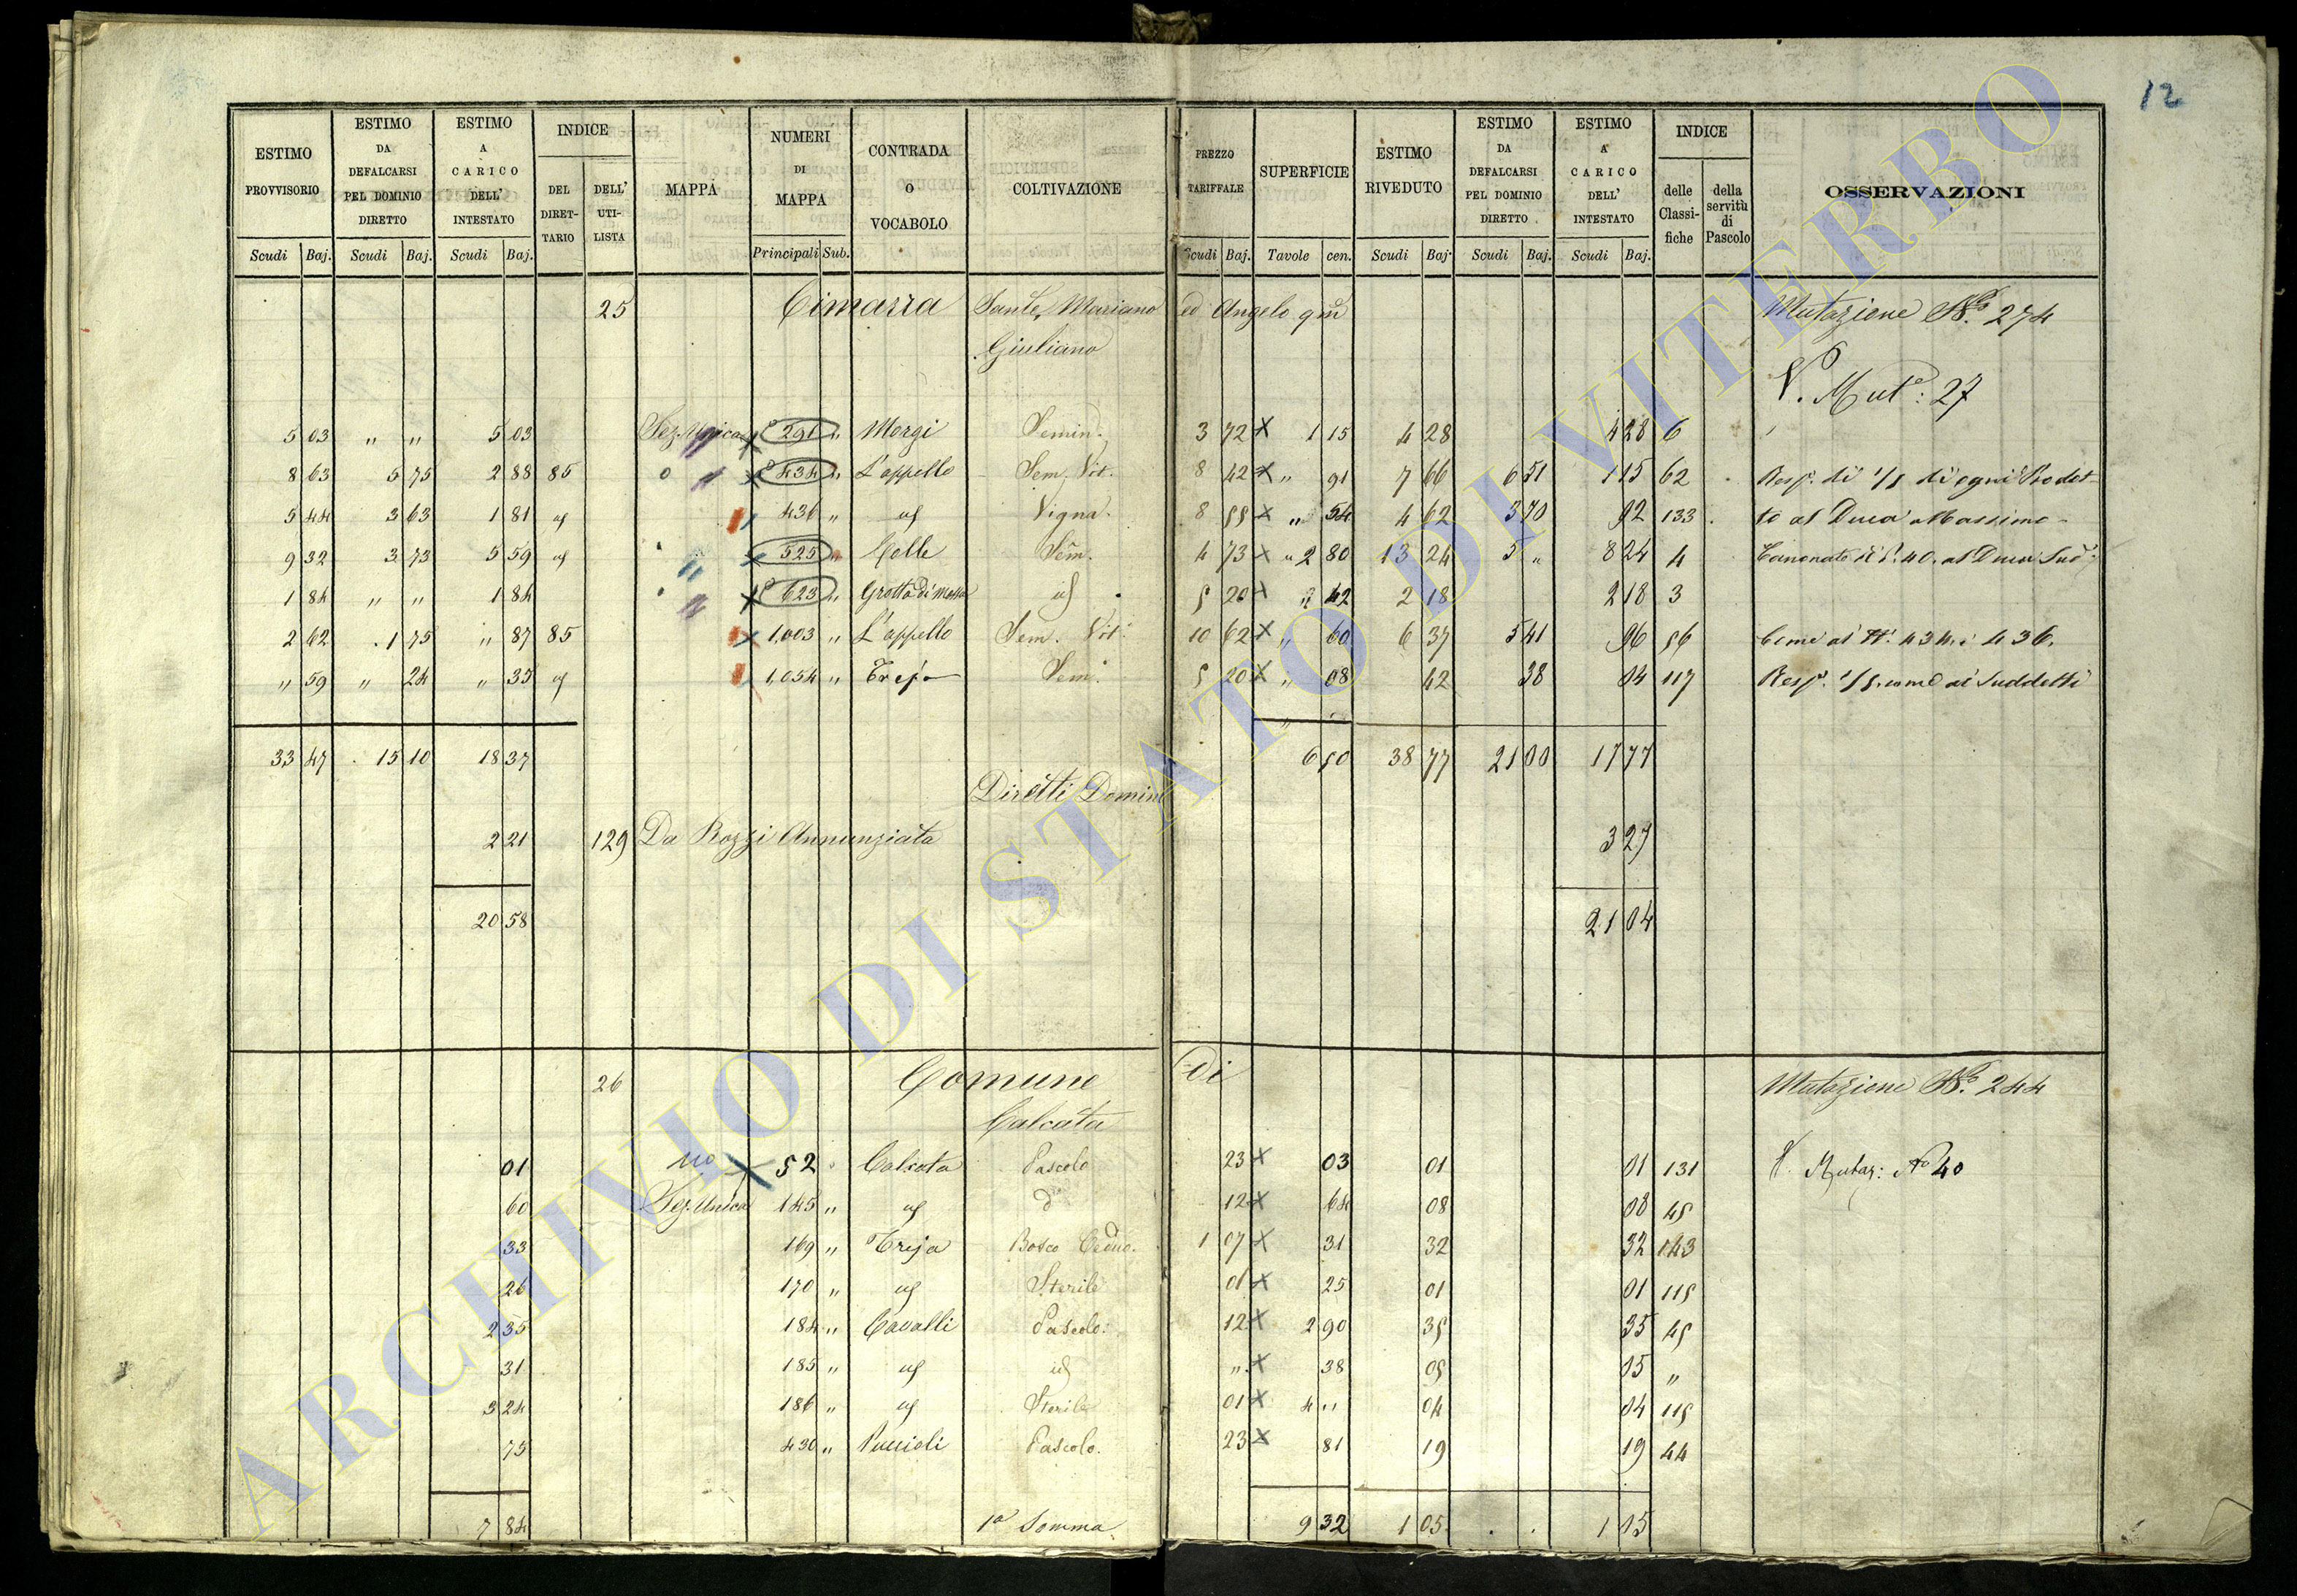 12
ESTIMO PROVVISORIO
ESTIMO DA DEFALCARSI PEL DOMINIO DIRETTO
ESTIMO A CARICO DELL' INTESTATO
INDICE
DEL DIRET-TARIO
DELL' UTI-LISTA
MAPPA
NUMERI DI MAPPA
CONTRADA O VOCABOLO
COLTIVAZIONE
PREZZO TARIFFALE
SUPERFICIE
ESTIMO RIVEDUTO
ESTIMO DA DEFALCARSI PEL DOMINIO DIRETTO
ESTIMO A CARICO DELL' INTESTATO
INDICE
delle Classi-fiche
della servitù di Pascolo
OSSERVAZIONI
Scudi Baj. Scudi Baj. Scudi Baj. Principali Sub. Scudi Baj. Tavole cen. Scudi Baj. Scudi Baj. Scudi Baj.
25 Cimarra Sante, Mariano ed Angelo qm Mutazione No. 274
Giuliano
V. Mut: 27
5 03 " " 5 03 Sez. Unica 291 " Morgi Semin. 3 72 x 1 15 4 28 4 28 6
8 63 5 75 2 88 85 " 434 " L'appello Sem. Vit. 8 42 x " 91 7 66 6 51 1 15 62 Resp. di 1/5 di ogni Prodot-
5 44 3 63 1 81 id 436 " id Vigna. 8 55 x " 54 4 62 3 70 92 133 to al Duca Massimo
9 32 3 73 5 59 id " 525 " Colle Sem. 4 73 x 2 80 13 24 5 " 8 24 4 Canonato di 40. al Duca Sud
1 84 " " 1 84 " 623 " Grotta di Massa id 5 20 x " 42 2 18 2 18 3
2 62 1 75 " 87 85 1,003 " L'appello Sem. Vit. 10 62 x " 60 6 37 5 41 96 56 Come ai N. 434. e 436.
" 59 " 24 " 35 id 1,054 " Treja Sem. 5 20 x " 08 42 38 04 117 Resp. 1/5. come ai Suddetti
33 47 15 10 18 37 6 50 38 77 21 00 17 77
Diretti Domini
2 21 129 Da Rozzi Annunziata 3 27
20 58 21 04
26 Comune Di Mutazione No. 244
Calcata
01 110 x 52 " Calcata Pascolo 23 x 03 01 01 131 V. Mutaz: No 40
60 Sez. Unica 145 " id d° 12 x 64 08 08 45
33 169 " Treja Bosco Ceduo. 1 07 x 31 32 32 143
26 170 " id Sterile 01 x 25 01 01 115
2 35 184 " Cavalli Pascolo. 12 x 2 90 35 35 45
31 185 " id id " x 38 05 05 "
3 24 186 " id Sterile 01 x 4 " 04 04 115
75 430 " Puccioli Pascolo. 23 x 81 19 19 44
7 84 1a Somma 9 32 1 05 1 05
ARCHIVIO DI STATO DI VITERBO